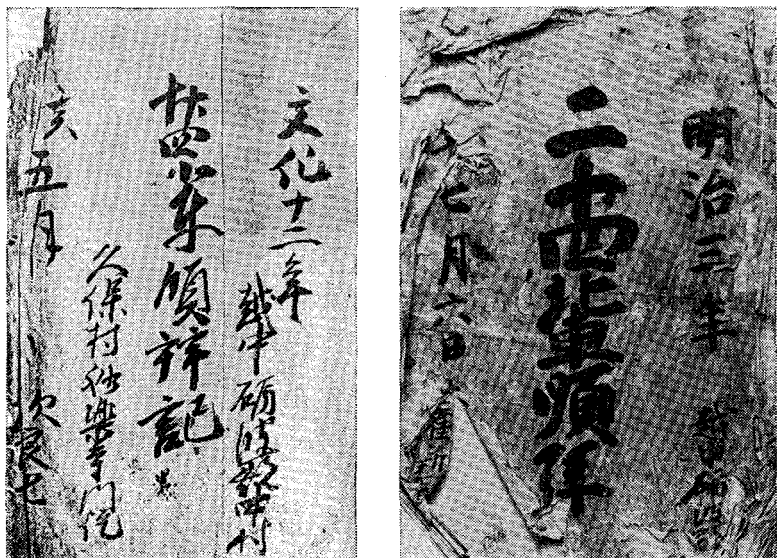 明治三年
越中砺波郡
二十四輩順拝
七月六日
文化十二年
越中砺波郡中村
廿四輩順拝記
久保村極楽寺門徒
亥五月
次良七